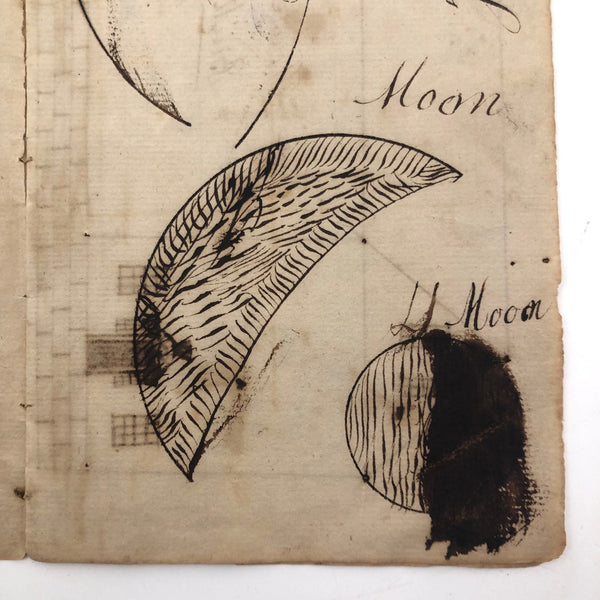 Moon
Moon